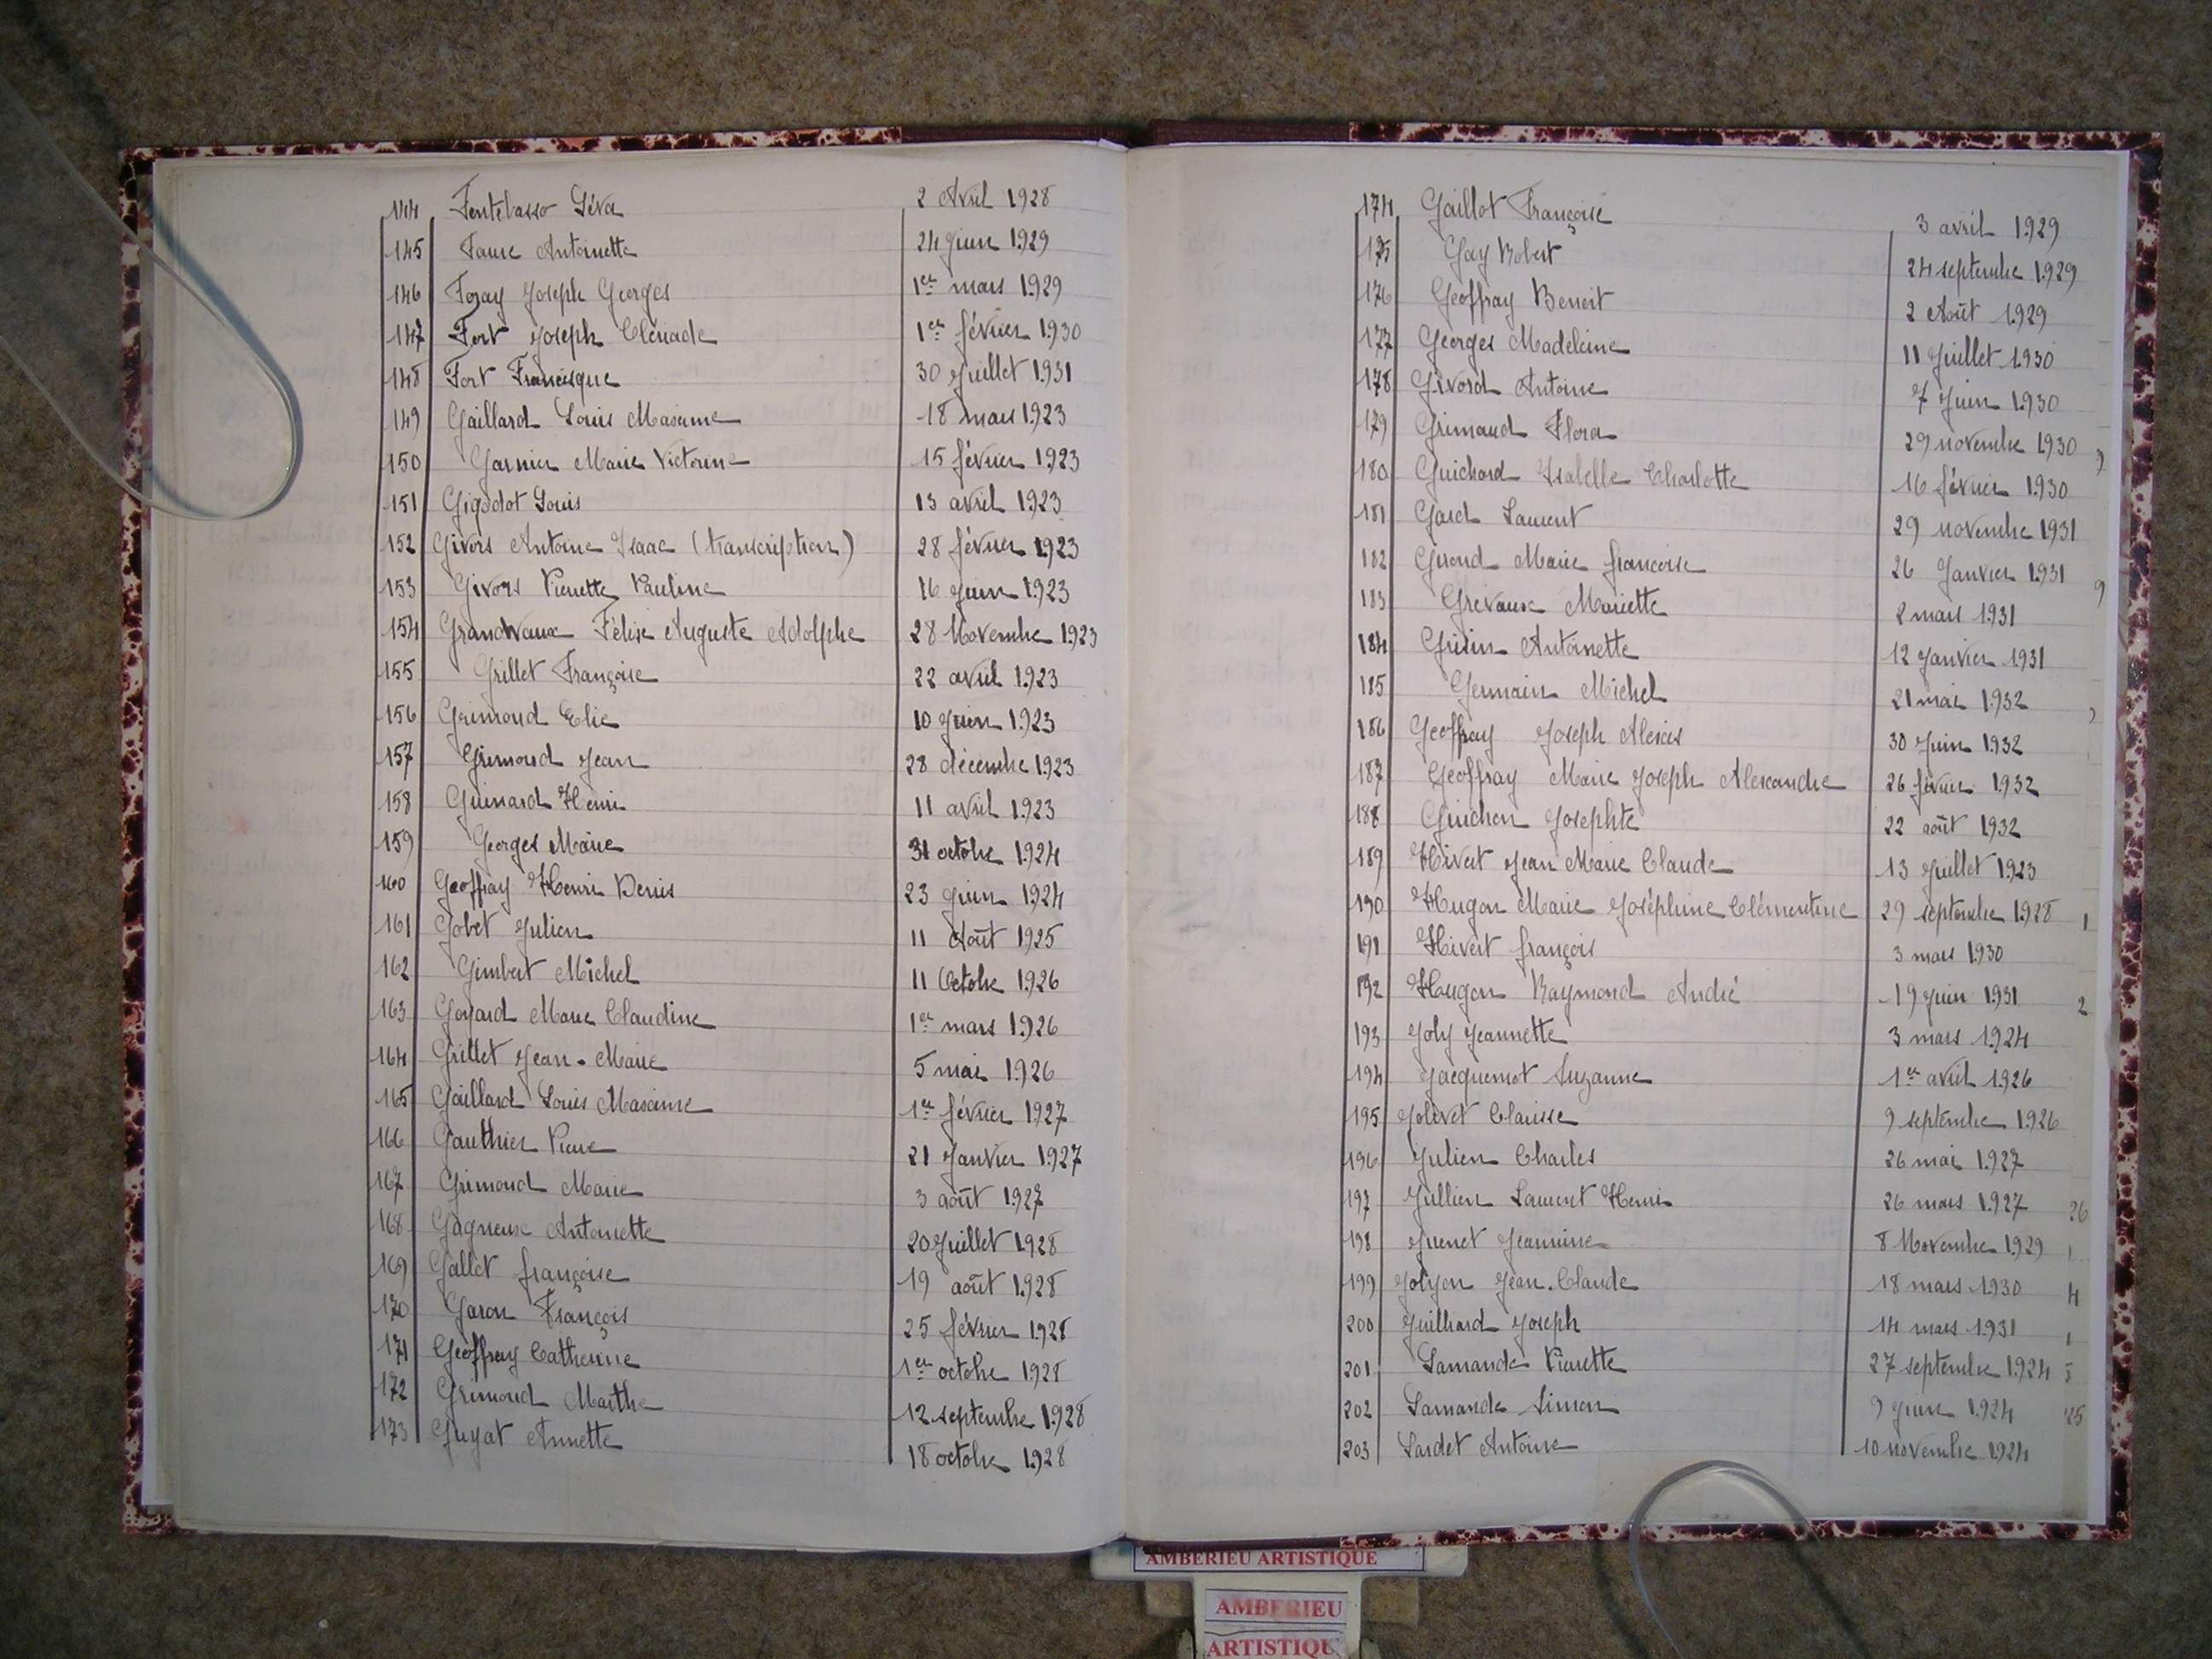 144 Fentebasso Géva 2 Avril 1928
145 Faure Antoinette 24 Juin 1929
146 Foray Joseph Georges 1er mars 1929
147 Fort Joseph Clériade 1er février 1930
148 Fort Francisque 30 Juillet 1931
149 Gaillard Louis Maxime 18 mars 1923
150 Garnier Marie Victorine 15 février 1923
151 Gigodot Louis 13 avril 1923
152 Givors Antoine Isaac (transcription) 28 février 1923
153 Givors Pierrette Pauline 16 Juin 1923
154 Grandvaux Félix Auguste Adolphe 28 Novembre 1923
155 Grillet Françoise 22 avril 1923
156 Grimoud Elie 10 Juin 1923
157 Grimoud Jean 28 décembre 1923
158 Guinard Henri 11 avril 1923
159 Georges Marie 31 octobre 1924
160 Geoffray Henri Denis 23 Juin 1924
161 Gobet Julien 11 Août 1925
162 Gimbert Michel 11 Octobre 1926
163 Goyard Marie Claudine 1er mars 1926
164 Grillet Jean-Marie 5 mai 1926
165 Gaillard Louis Maxime 1er février 1927
166 Gauthier Pierre 21 Janvier 1927
167 Grimoud Marie 3 août 1927
168 Gagneux Antoinette 20 Juillet 1928
169 Gallet françoise 19 août 1928
170 Garon François 25 février 1928
171 Geoffray Catherine 1er octobre 1928
172 Grimoud Marthe 12 septembre 1928
173 Guyat Annette 18 octobre 1928
174 Gaillot Françoise 3 avril 1929
175 Gay Robert 24 septembre 1929
176 Geoffray Benoit 2 Août 1929
177 Georges Madeleine 11 Juillet 1930
178 Givord Antoine 7 Juin 1930
179 Grimaud Flora 29 novembre 1930
180 Guichard Isabelle Charlotte 16 février 1930
181 Gard Laurent 29 novembre 1931
182 Girond Marie francoise 26 Janvier 1931
183 Grevaux Mariette 2 mars 1931
184 Guérin Antoinette 12 Janvier 1931
185 Germain Michel 21 mai 1932
186 Geoffray Joseph Alexis 30 Juin 1932
187 Geoffray Marie Joseph Alexandre 26 février 1932
188 Guichon Josephte 22 août 1932
189 Hivert Jean Marie Claude 13 Juillet 1923
190 Hugon Marie Joséphine Clémentine 29 septembre 1928
191 Hivert françois 3 mars 1930
192 Hugon Raymond André 19 Juin 1931
193 Joly Jeannette 3 mars 1924
194 Jacquemot Suzanne 1er avril 1926
195 Jolivet Clarisse 9 septembre 1926
196 Julien Charles 26 mai 1927
197 Jullien Laurent Henri 26 mars 1927
198 Juenet Jeannine 8 Novembre 1929
199 Jolyon Jean-Claude 18 mars 1930
200 Juilliard Joseph 14 mars 1931
201 Lamande Pierrette 27 septembre 1924
202 Lamande Simon 9 Juin 1924
203 Lardet Antoine 10 novembre 1924
AMBERIEU ARTISTIQUE
AMBERIEU
ARTISTIQU